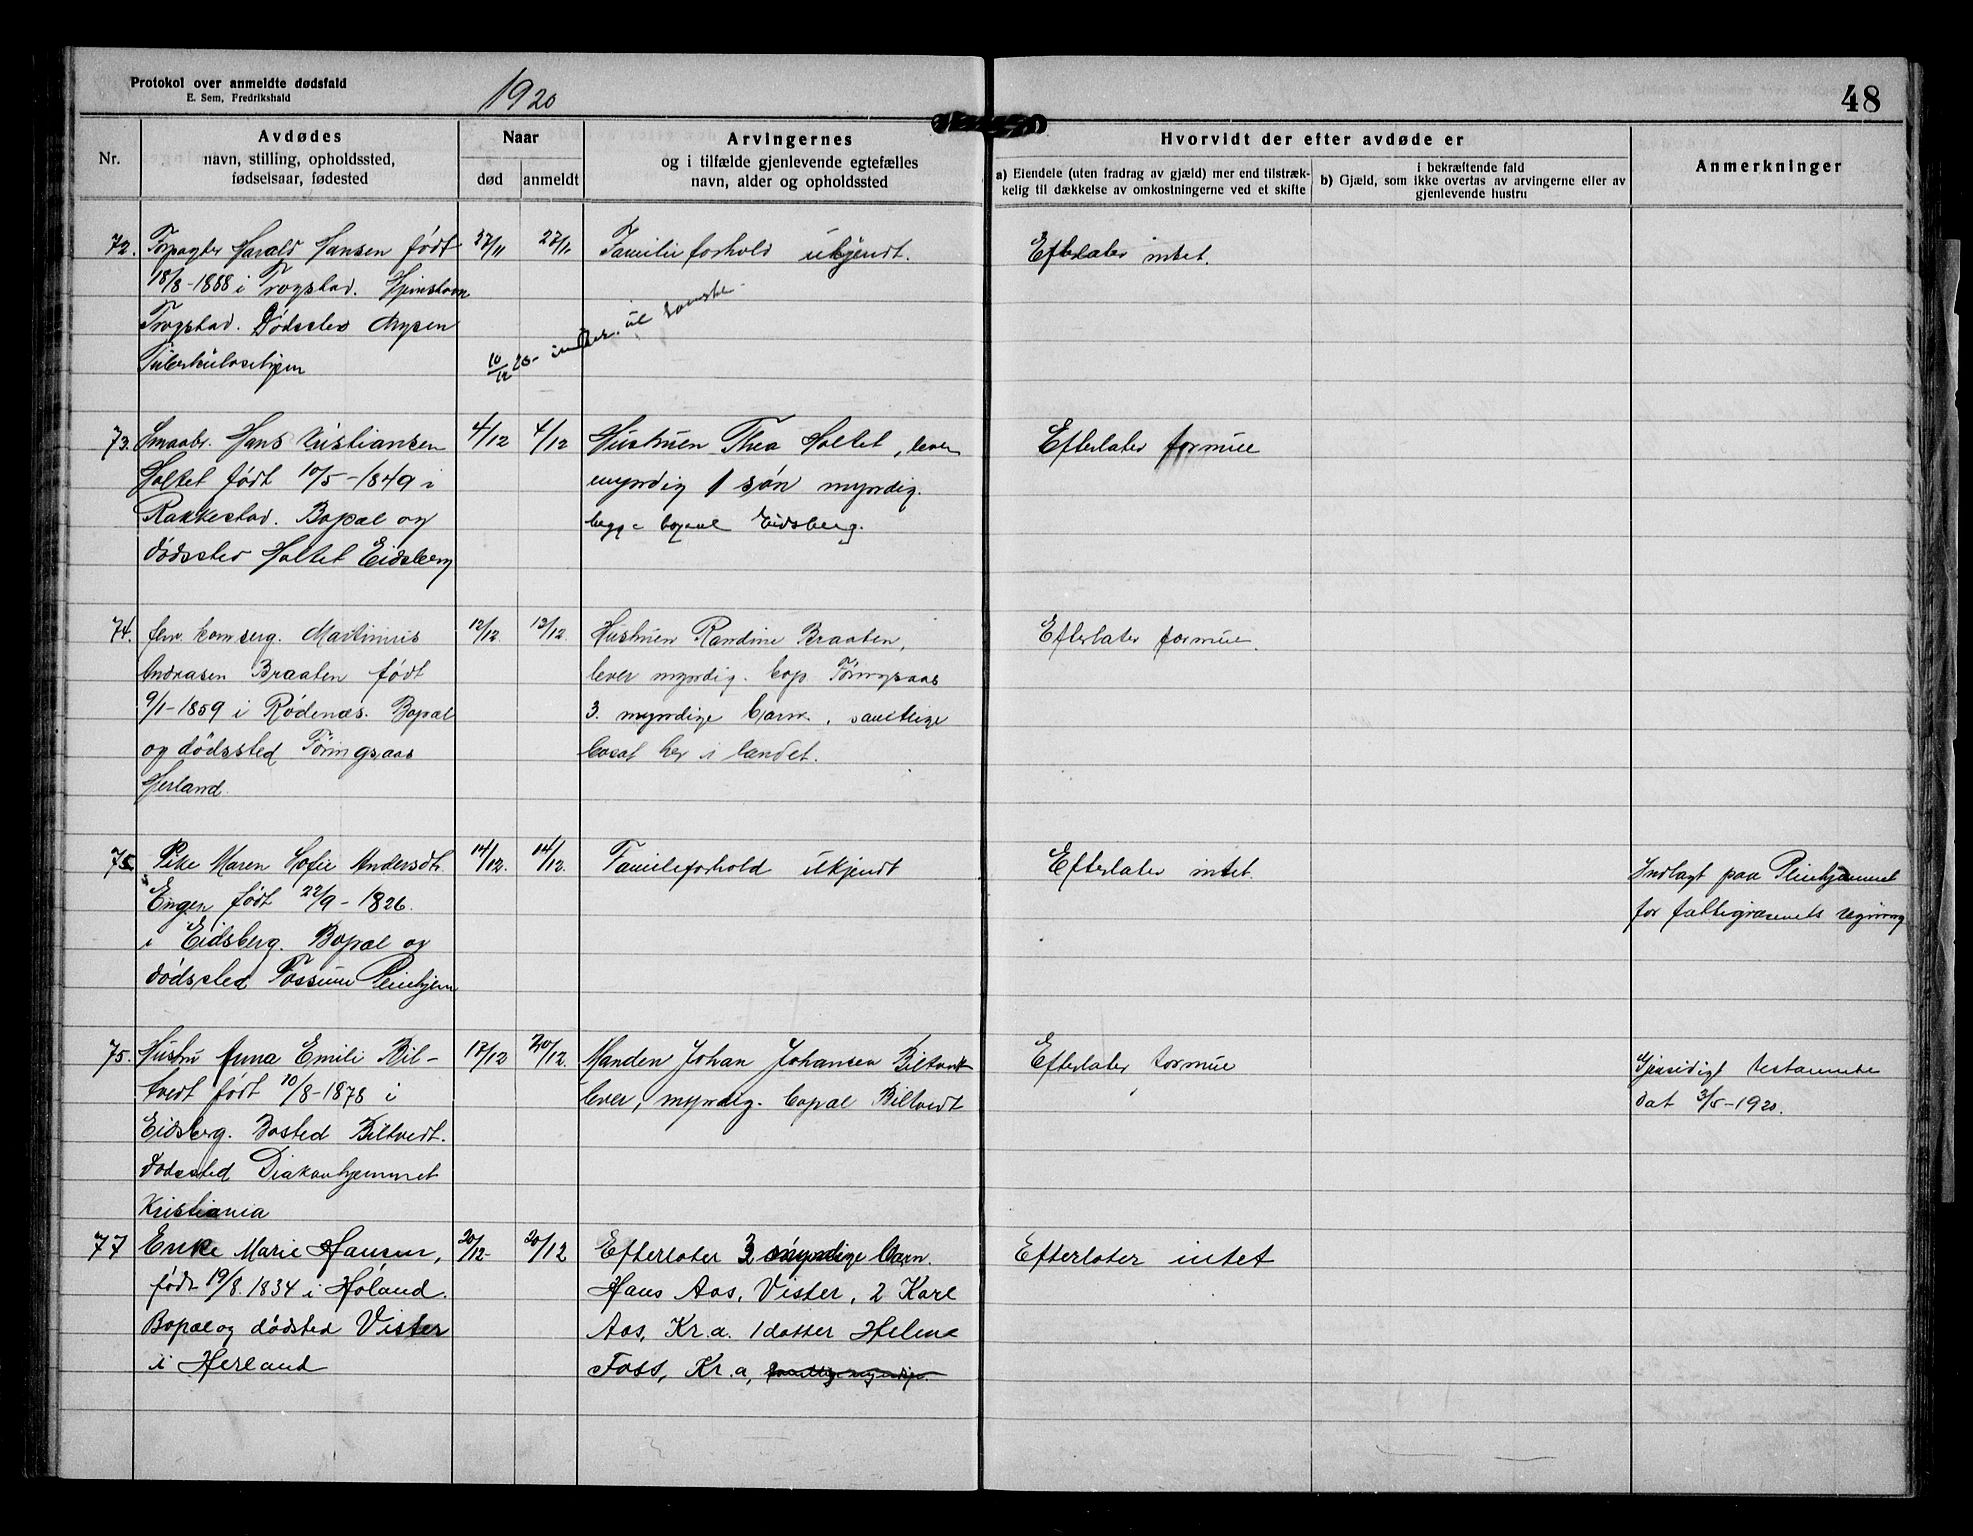 Protokol over anmeldte dødsfald
E. Sem, Fredrikshald
1920
48
Nr.
Avdødes
navn, stilling, opholdssted,
fødselsaar, fødested
Naar
død
anmeldt
Arvingernes
og i tilfælde gjenlevende egtefælles
navn, alder og opholdssted
Hvorvidt der efter avdøde er
a) Eiendele (uten fradrag av gjæld) mer end tilstræk-
kelig til dækkelse av omkostningerne ved et skifte
i bekræftende fald
b) Gjæld, som ikke overtas av arvingerne eller av
gjenlevende hustru
Anmerkninger
72. Forpagter Harald Hansen født
18/8-1888 i Trøgstad. Hjemstavn
Trøgstad. Dødssted Mysen
Tuberkulosehjem
27/11
27/11
Familieforhold ukjendt.
10/12 20
Efterlater intet.
73. Smaabr. Hans Kristiansen
Holtet født 10/5-1849 i
Rakkestad. Bopæl og
dødssted Holtet Eidsberg
4/12
4/12
Hustruen Thea Holtet, lever
myndig 1 søn myndig.
begge bopæl Eidsberg.
Efterlater formue
74. Martinius
Andrasen Braaten født
9/1-1859 i Rødenæs. Bopæl
og dødssted Føringsaas
Herland.
12/12.
13/12.
Hustruen Randine Braaten,
lever myndig. bop. Føringsaas
3. myndige barn, samtlige
bosat her i landet.
Efterlater formue.
75. Pike Maren Sofie Andersdtr.
Engen født 22/9-1826.
i Eidsberg. Bopæl og
dødssted Fossum Pleiehjem
14/12.
14/12.
Familieforhold ukjendt
Efterlater intet.
Indlagt paa Pleiehjemmet
for fattigvæsenets regning
75. Hustru Anna Emilie Bil-
tvedt født 10/8-1878 i
Eidsberg. Bosted Biltvedt.
Dødssted Diakonhjemmet
Kristiania
17/12
20/12.
Manden Johan Johansen Biltvedt
lever, myndig. bopæl Biltvedt
Efterlater formue
Gjensidigt testamente
dat 3/5-1920.
77 Enke Marie Hansen,
født 19/8.1834 i Høland.
Bopæl og dødsted Vister
i Herland
20/12-
20/12
Efterlater 3 myndige barn.
Hans Aas, Vister, 2 Karl
Aas, Kr.a. 1 datter Helene
Foss, Kr.a,
Efterlater intet